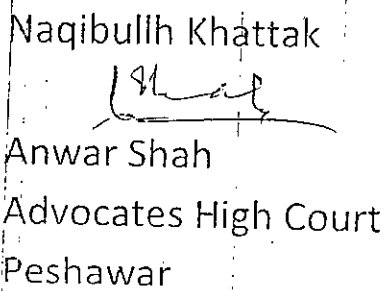 Naqibullh Khattak
Anwar Shah
Advocates High Court
Peshawar